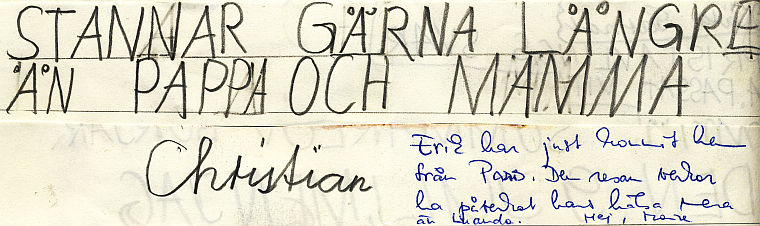 STANNAR GÄRNA LÄNGRE
ÄN PAPPA OCH MAMMA
Christian
Erik har just kommit hem
från Paris. Den resan verkar
ha påverkat hans hälsa mera
än Hej,